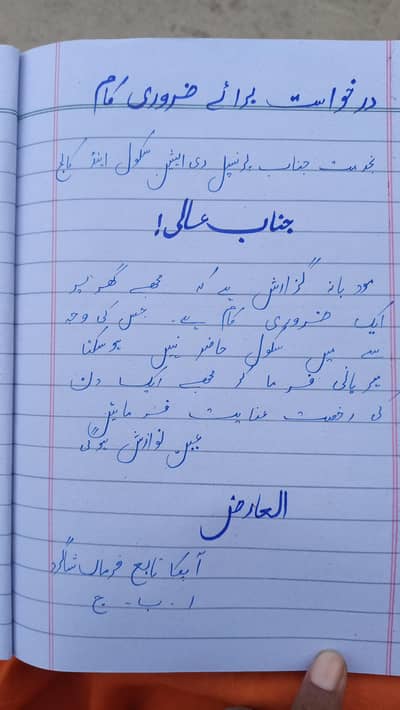 درخواست برائے ضروری کام
بخدمت جناب پرنسپل دی ایشن سکول اینڈ کالج
جناب عالی!
مودبانہ گزارش ہے کہ مجھے گھر پر
ایک ضروری کام ہے۔ جس کی وجہ
سے میں سکول حاضر نہیں ہو سکتا
مہربانی فرما کر مجھے ایک دن
کی رخصت عنایت فرمائیں
عین نوازش ہوگی
العارض
آپکا تابع فرمان شاگرد
ا۔ ب۔ ج